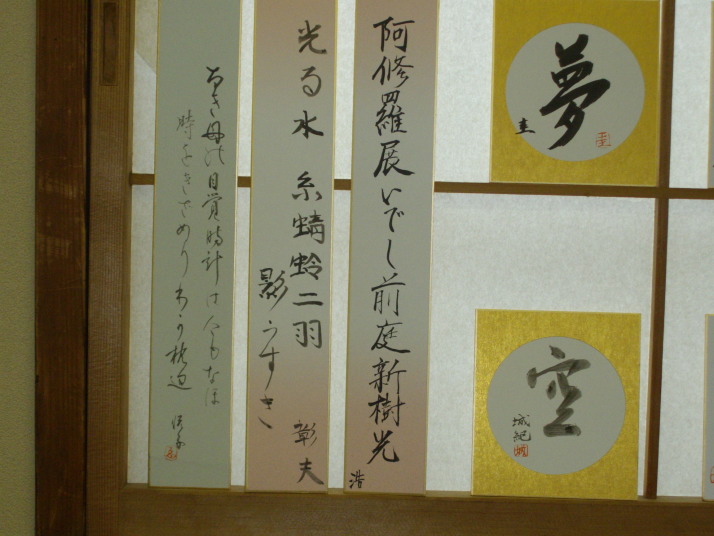 夢
圭
空
城紀
阿修羅展いでし前庭新樹光
浩
光る水 糸蜻蛉二羽
影うすき
彰夫
なき母の目覚時計は今もなほ
時をきざめりわが枕辺